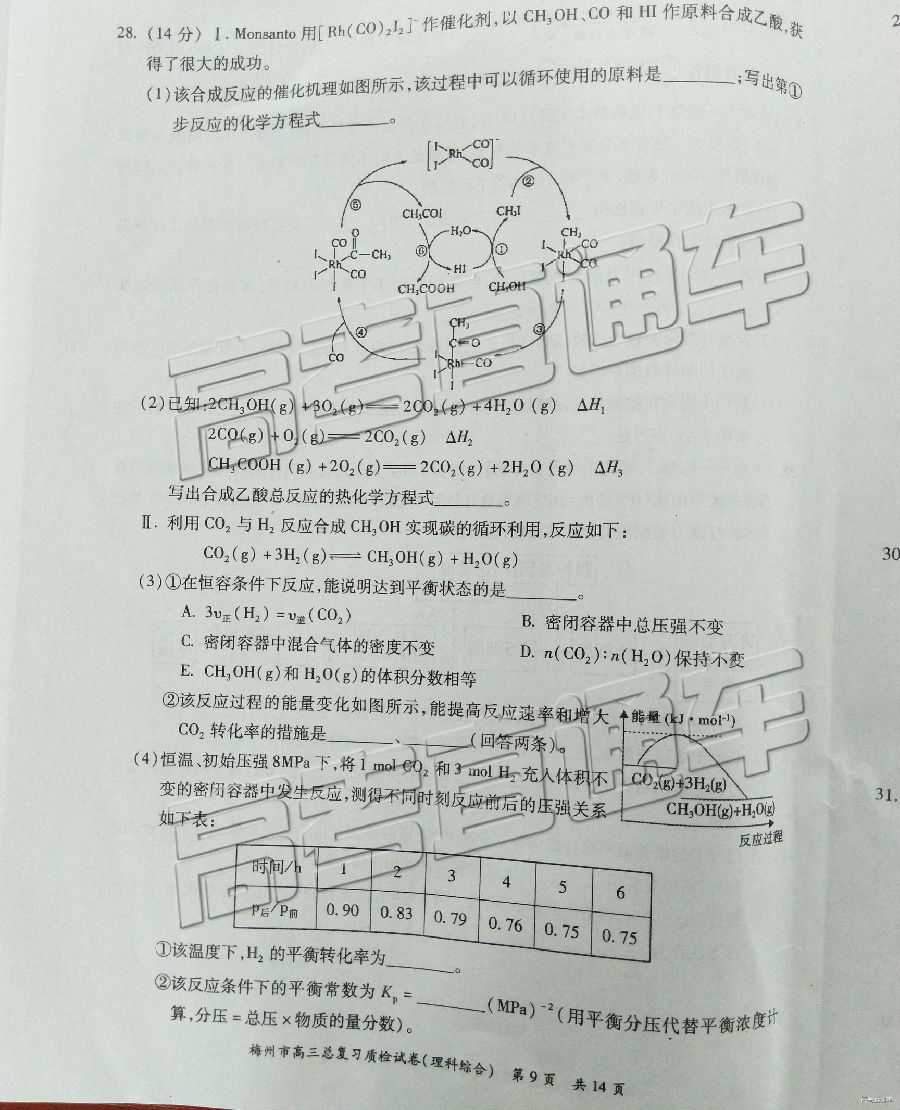 28.（14分）Ⅰ. Monsanto 用[Rh(CO)₂I₂]⁻作催化剂,以 CH₃OH、CO 和 HI 作原料合成乙酸,获
得了很大的成功。
(1)该合成反应的催化机理如图所示,该过程中可以循环使用的原料是________;写出第①
步反应的化学方程式________。
I I Rh CO CO ⁻
⑤ ②
CH₃COI CH₃I
H₂O
⑥ ①
HI
CH₃COOH CH₃OH
I I Rh CO C O CH₃ CO I
CH₃ I I Rh CO CO I
④ ③
CO
CH₃ C=O I I Rh CO I
(2)已知:2CH₃OH(g)+3O₂(g)══2CO₂(g)+4H₂O (g) ΔH₁
2CO(g)+O₂(g)══2CO₂(g) ΔH₂
CH₃COOH (g)+2O₂(g)══2CO₂(g)+2H₂O (g) ΔH₃
写出合成乙酸总反应的热化学方程式________。
Ⅱ. 利用 CO₂ 与 H₂ 反应合成 CH₃OH 实现碳的循环利用,反应如下:
CO₂(g)+3H₂(g)⇌CH₃OH(g)+H₂O(g)
(3)①在恒容条件下反应,能说明达到平衡状态的是________。
A. 3υ正(H₂)=υ逆(CO₂) B. 密闭容器中总压强不变
C. 密闭容器中混合气体的密度不变 D. n(CO₂):n(H₂O)保持不变
E. CH₃OH(g)和 H₂O(g)的体积分数相等
②该反应过程的能量变化如图所示,能提高反应速率和增大
CO₂ 转化率的措施是________、________(回答两条)。
能量 (kJ·mol⁻¹)
CO₂(g)+3H₂(g)
CH₃OH(g)+H₂O(g)
反应过程
(4)恒温、初始压强 8MPa 下,将 1 mol CO₂ 和 3 mol H₂ 充入体积不
变的密闭容器中发生反应,测得不同时刻反应前后的压强关系
如下表:
时间/h 1 2 3 4 5 6
P后/P前 0.90 0.83 0.79 0.76 0.75 0.75
①该温度下,H₂ 的平衡转化率为________。
②该反应条件下的平衡常数为 Kp=________(MPa)⁻²(用平衡分压代替平衡浓度计
算,分压=总压×物质的量分数)。
梅州市高三总复习质检试卷(理科综合) 第 9 页 共 14 页
2
30
31.
高考直通车
高考直通车